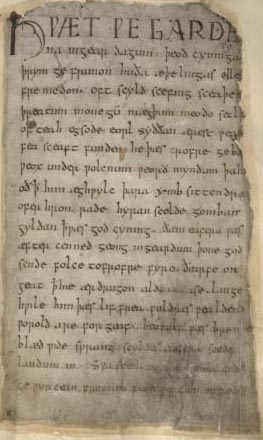 HǷÆT ǷE GARDE
na ingear dagum . þeod cyninga
þrym ge frunon huða æþelingas elle
fre medon . oft scyld scefing sceaþe
þreatum monegū mægþum meodo setl
of teah egsode eorl syððan ærest ƿear
fea sceaft funden he þæs frofre geba
ƿeox under ƿolcnum ƿeorð myndum þah
oð ꝥ him æghƿylc þara ymb sittendra
ofer hron rade hyran scolde gomban
gyldan ꝥ ƿæs god cyning . ðæm eafera ƿæs
æfter cenned geong ingeardum þone god
sende folce tofrofre fyren ðearfe on
geat ꝥ hie ær drugon aldor ase . lange
hƿile him þæs lif frea ƿuldres ƿealdend
ƿorold are forgeaf . beoƿulf ƿæs breme
blæd ƿide sprang scyldes eafera scede
landum in . Sƿa sceal